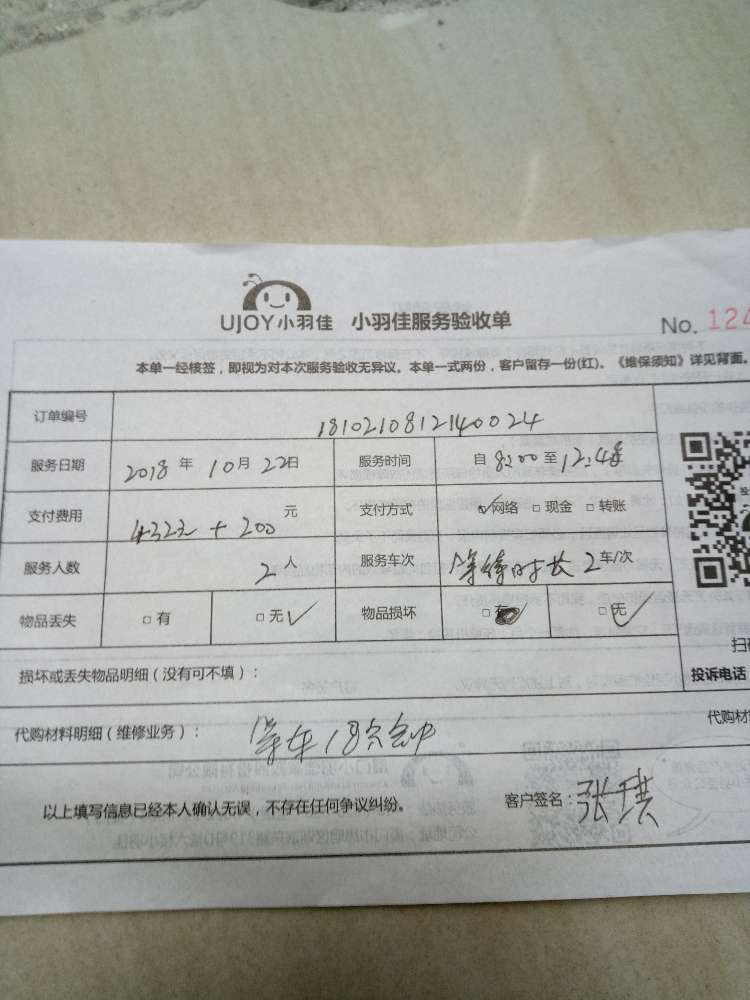 UJOY小羽佳 小羽佳服务验收单
No. 124
本单一经核签，即视为对本次服务验收无异议。本单一式两份，客户留存一份(红)。《维保须知》详见背面。
订单编号 1810210812140024
服务日期 2018年10月22日 服务时间 自8:00至12:48
支付费用 4322元+200元 支付方式 网络 现金 转账
服务人数 2人 服务车次 等待时长2车/次
物品丢失 有 无 物品损坏 有 无
扫
损坏或丢失物品明细（没有可不填）： 投诉电话
代购材料明细（维修业务）： 等车18分钟 代购材
以上填写信息已经本人确认无误，不存在任何争议纠纷。 客户签名：张琪